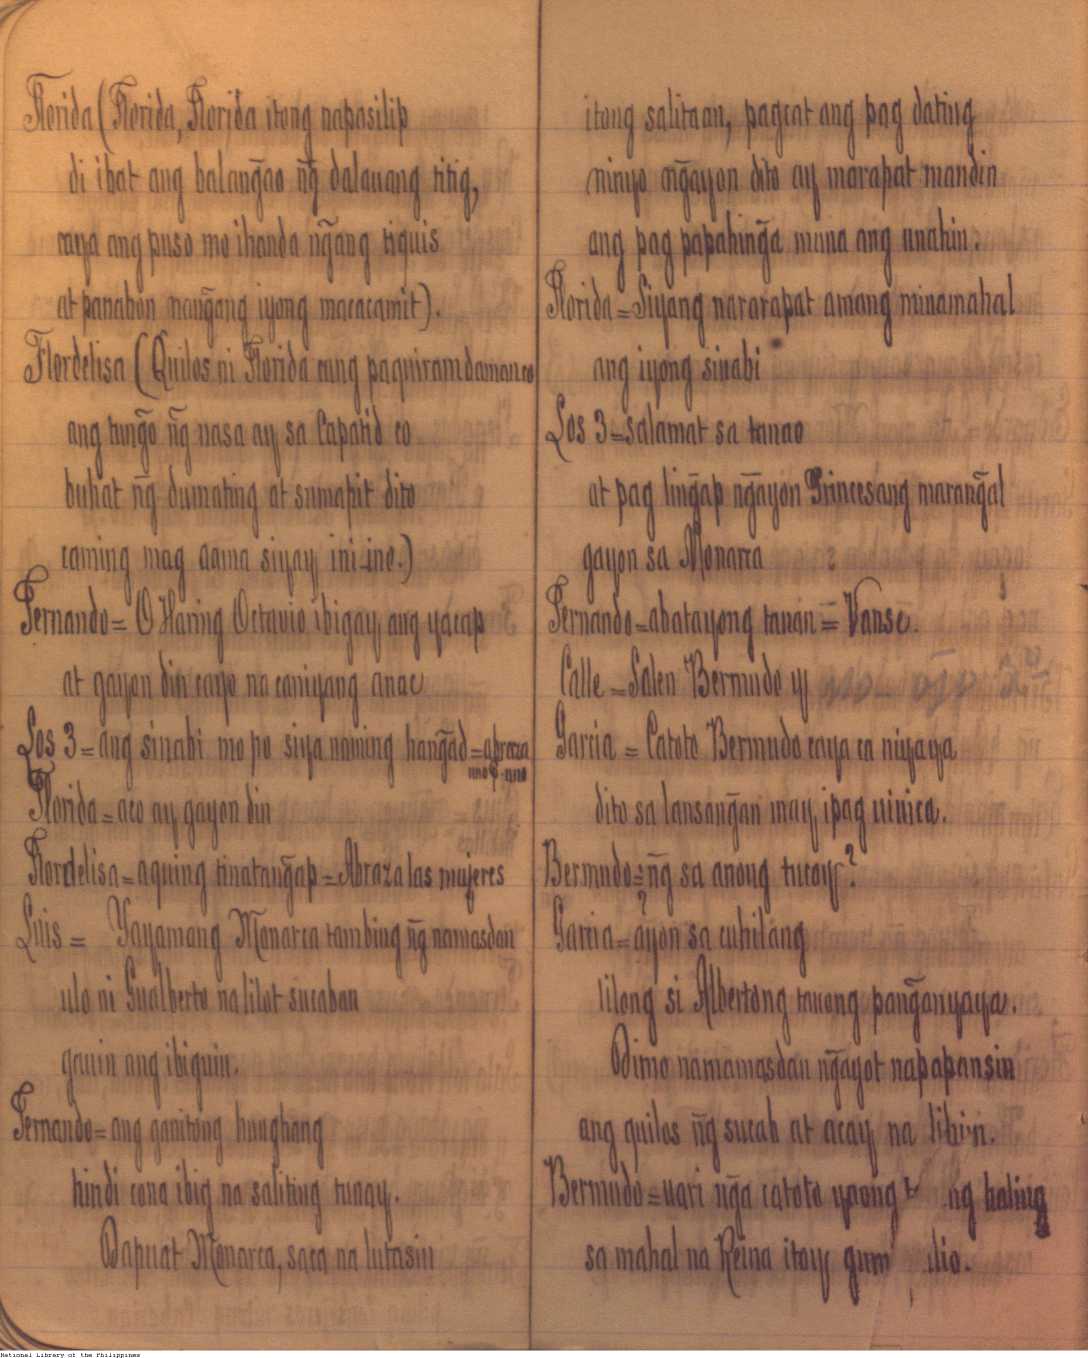 Florida (Florida, Florida itong napasilip
di ibat ang balang̃ao ng̃ dalauang titig,
caya ang puso mo ihanda ng̃ang tiquis
at panahon nang̃ang iyong macacamit).
Flordelisa (Quilos ni Florida cung paquiramdaman co
ang tung̃o ng̃ nasa ay sa Capatid co
buhat ng̃ dumating at sumapit dito
caming mag aama siyay ini-ino.)
Fernando = O Haring Octavio ibigay ang yacap
at gayon din cayo na caniyang anac
Los 3 = ang sinabi mo po siya naming hang̃ad = abraza
uno p. uno
Florida = aco ay gayon din
Flordelisa = aquing tinatang̃ap = Abraza las mujeres
Luis = Yayamang Monarca tambing ng̃ namasdan
ulo ni Gualberto na lilot sucaban
gauin ang ibiguin.
Fernando = ang ganitong hunghang
hindi cona ibig na saliting tunay.
Datapuat Monarca, saca na lutasin
itong salitaan, pagcat ang pag dating
ninyo ng̃ayon dito ay marapat mandin
ang pag papahing̃a muna ang unahin.
Florida = Siyang nararapat amang minamahal
ang iyong sinabi
Los 3 = salamat sa tanao
at pag ling̃ap ng̃ayon Princesang marang̃al
gayon sa Monarca
Fernando = abatayong tanan = Vanse.
Calle = Salen Bermudo y
Garcia = Catoto Bermudo caya ca niyaya
dito sa lansang̃an may ipag uinica.
Bermudo = ng̃ sa anong tucoy?
Garcia = ayon sa cuhilang
lilong si Albertong tauong pang̃anyaya.
Dimo namamasdan ng̃ayot napapansin
ang quilos ng̃ sucab at acay na libin.
Bermudo = uari ng̃a catoto yaong ng haling
sa mahal na Reina itoy